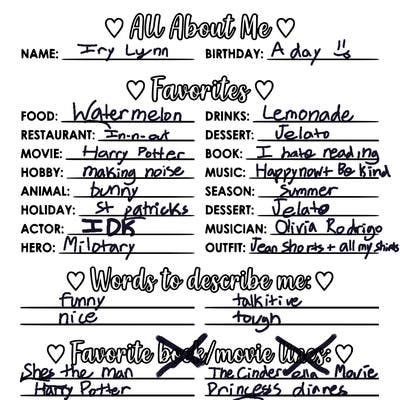 ♡ All About Me ♡
NAME: Iry Lynn BIRTHDAY: A day
♡ Favorites ♡
FOOD: Watermelon DRINKS: Lemonade
RESTAURANT: In-n-out DESSERT: Jelato
MOVIE: Harry Potter BOOK: I hate reading
HOBBY: making noise MUSIC: Happynow + Be kind
ANIMAL: bunny SEASON: Summer
HOLIDAY: St patricks DESSERT: Jelato
ACTOR: IDK MUSICIAN: Olivia Rodrigo
HERO: Milotary OUTFIT: Jean Shorts + all my shirts
♡ Words to describe me: ♡
funny talkitive
nice tough
♡ Favorite book/movie lines: ♡
Shes the man The Cinderella Movie
Harry Potter Princess diaries